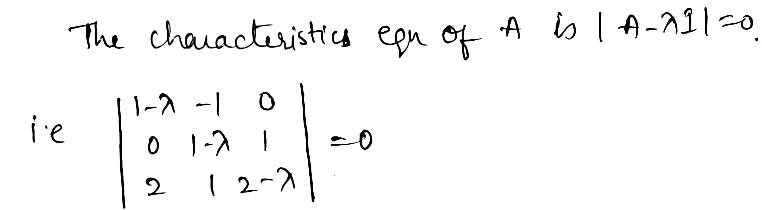 The characteristics eqn of A is | A-λI|=0.
i.e | 1-λ -1 0 |
| 0 1-λ 1 | =0
| 2 1 2-λ |